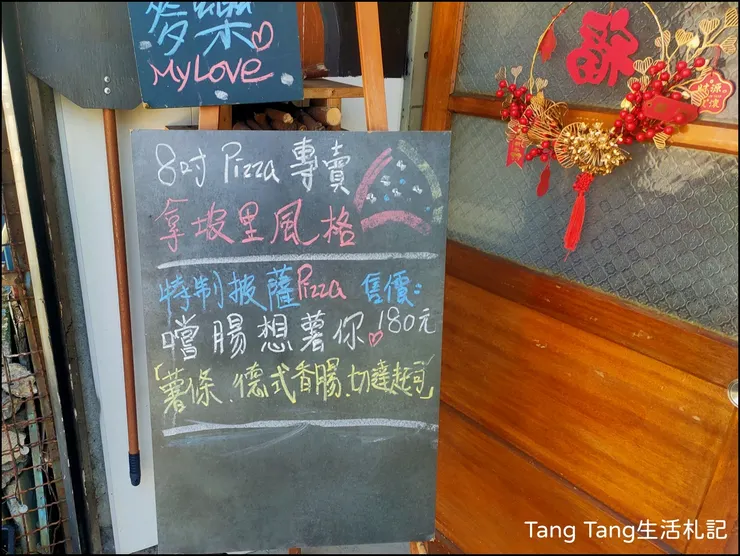 窯樂
My LOVE
8吋 Pizza 專賣
拿坡里風格
特制披薩Pizza 售價:
嚐腸想薯你 180元
「薯條、德式香腸、切達起司」
Tang Tang生活札記